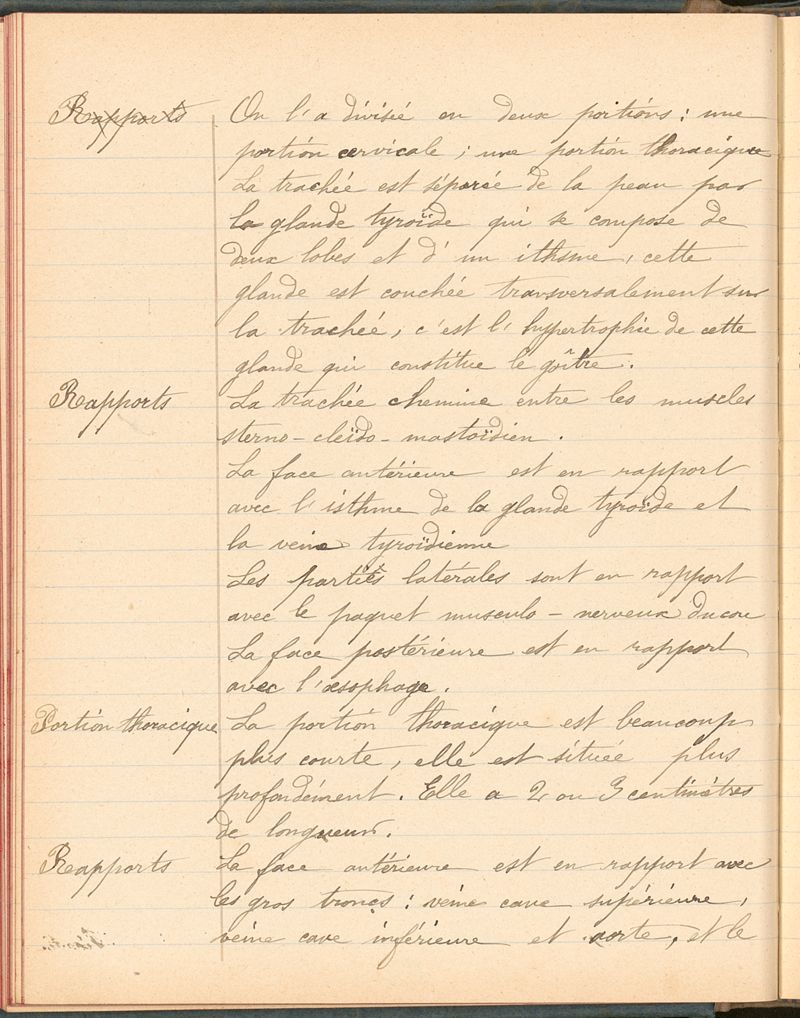 Rapports On l'a divisié en deux portions : une
portion cervicale ; une portion thoracique
La trachée est séparée de la peau par
la glande tyroïde qui se compose de
deux lobes et d'un ithsme, cette
glande est couchée transversalement sur
la trachée, c'est l'hypertrophie de cette
glande qui constitue le goître.
Rapports La trachée chemine entre les muscles
sterno-cleïdo-mastoïdien.
La face antérieure est en rapport
avec l'isthme de la glande tyroïde et
la veine tyroïdienne
Les parties latérales sont en rapport
avec le paquet musculo-nerveux du cou
La face postérieure est en rapport
avec l'œsophage.
Portion thoracique La portion thoracique est beaucoup
plus courte, elle est située plus
profondément. Elle a 2 ou 3 centimètres
de longueur.
Rapports La face antérieure est en rapport avec
les gros troncs : veine cave supérieure,
veine cave inférieure et aorte, et le